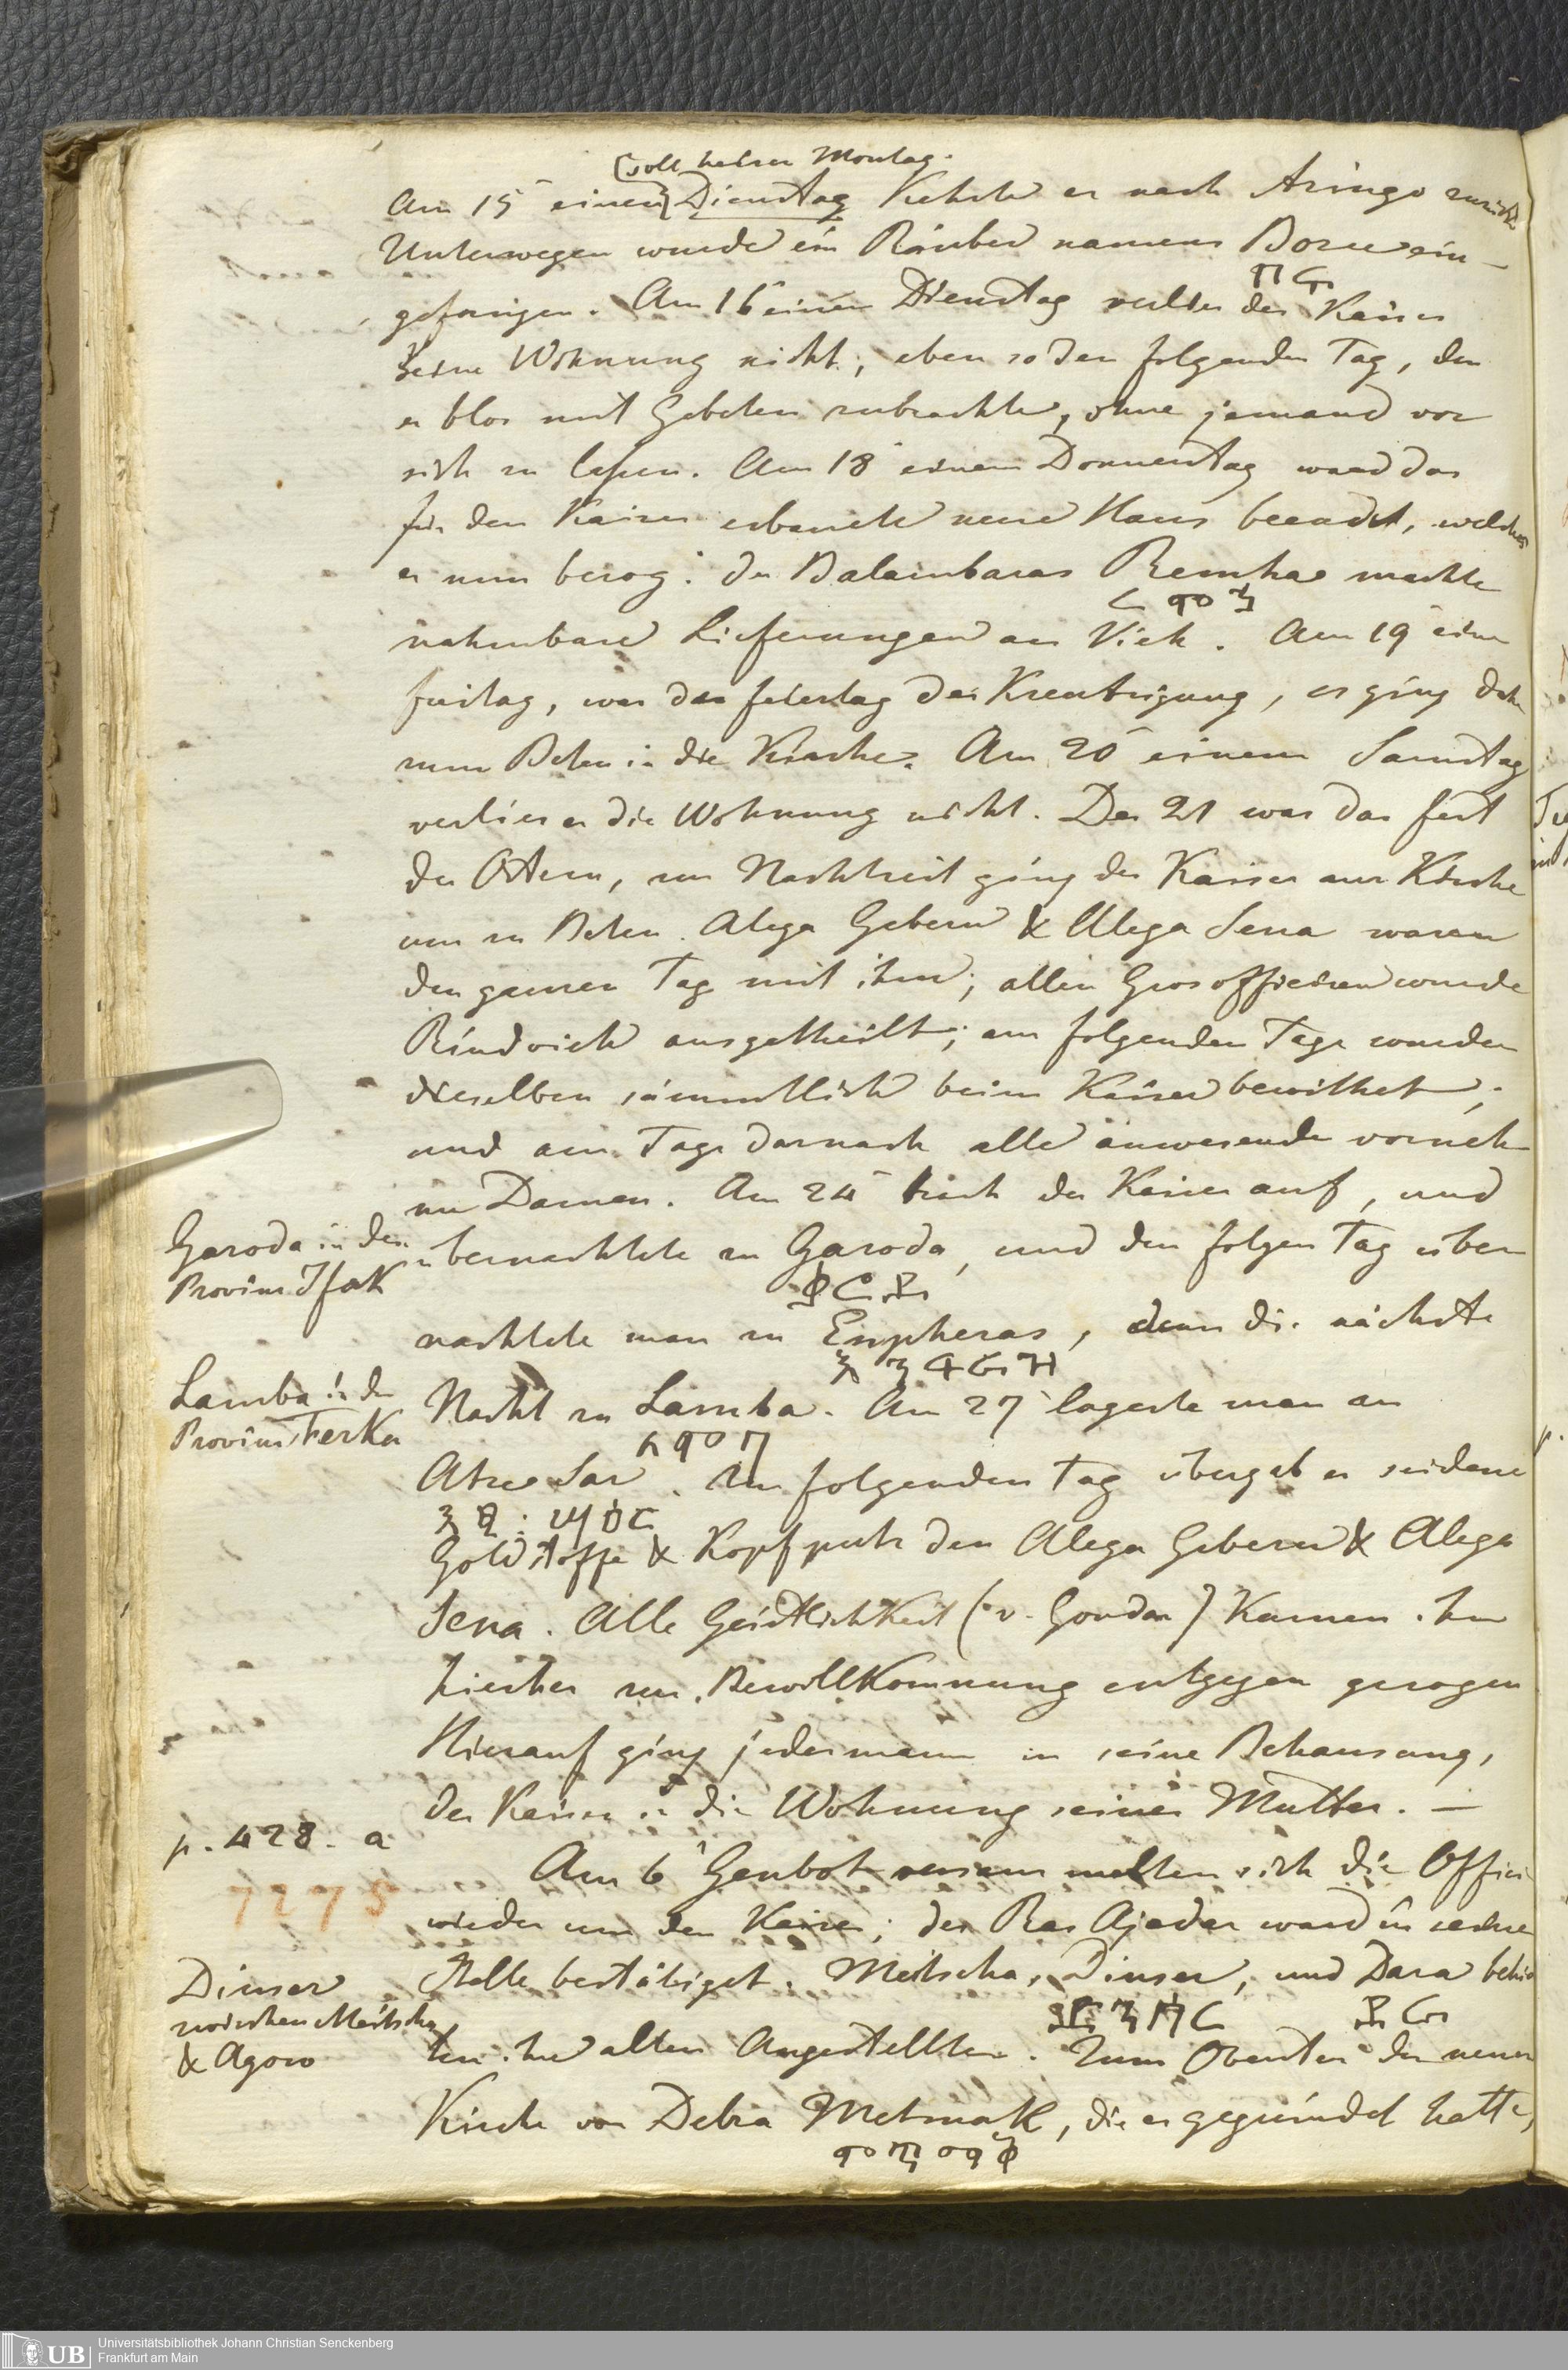 (soll heisen Montag.
Am 15ͭ einem Dienstag Kehrte er nach Aringo zurück
Unterwegen wurde ein Räuber namens Boru ein-
ቦሩ
gefangen. Am 16 einem Dienstag verlies der Kaiser
seine Wohnung nicht, eben so den folgenden Tag, den
er blos mit Gebeten zubrachte, ohne jemand vor
sich zu lassen. Am 18 einem Donnerstag ward das
für den Kaiser erbauete neue Haus beendet, welches
er nun bezog. der Balambaras Remha machte
ርምኃ
nahmbare Lieferungen an Vieh. Am 19 eim
freitag, war der feiertag der Kreutzigung, er ging daher
zum Beten in die Kirche. Am 20 einem Samstag
verlies er die Wohnung nicht. Der 21 war das fest
der Ostern, zur Nachtzeit ging der Kaiser zur Kirche
um zu Beten. Alega Geberu & Alega Sena waren
den ganzen Tag mit ihm; allen Grosofficieren wurde
Rindvieh ausgetheilt; am folgenden Tage wurden
dieselben sämmtlich beim Kaiser bewirthet,
und am Tage darnach alle anwesende vorneh-
me Damen. Am 24 brach der Kaiser auf, und
Garoda in der
Provinz Ifak
übernachtete zu Garoda, und den folgen Tag über
nachtete man zu Enpheras, dann die nächste
እንፍራዝ
Lamba in der
Provinz Ferka
Nacht zu Lamba. Am 27 lagerte man an
ላምባ
Atze Sar. Am folgenden Tag übergab er seidene
Goldstoffe & Kopfputz den Alega Geberu & Alega
Sena. Alle Geistlichkeit (v. Gondar) Kamen ihm
hierher zur Bewillkommung entgegen gezogen
Hierauf ging jedermann in seine Behausung,
der Kaiser in die Wohnung seiner Mutter. —
p. 428. a
7275
Am 6 Genbot melten sich die Offici
wieder um den Kaiser; der Ras Ajadar ward in seine
Stelle bestätiget. Meitscha, Dinser, und Dara behiel
Dinser
zwischen Meitscha
& Agow
ten ihre alten Angestellten. Zum Obersten der neuen
Kirche von Debra Metmak, die er gegründet hatte,
ምጥማቅ
Universitätsbibliothek Johann Christian Senckenberg
UB Frankfurt am Main